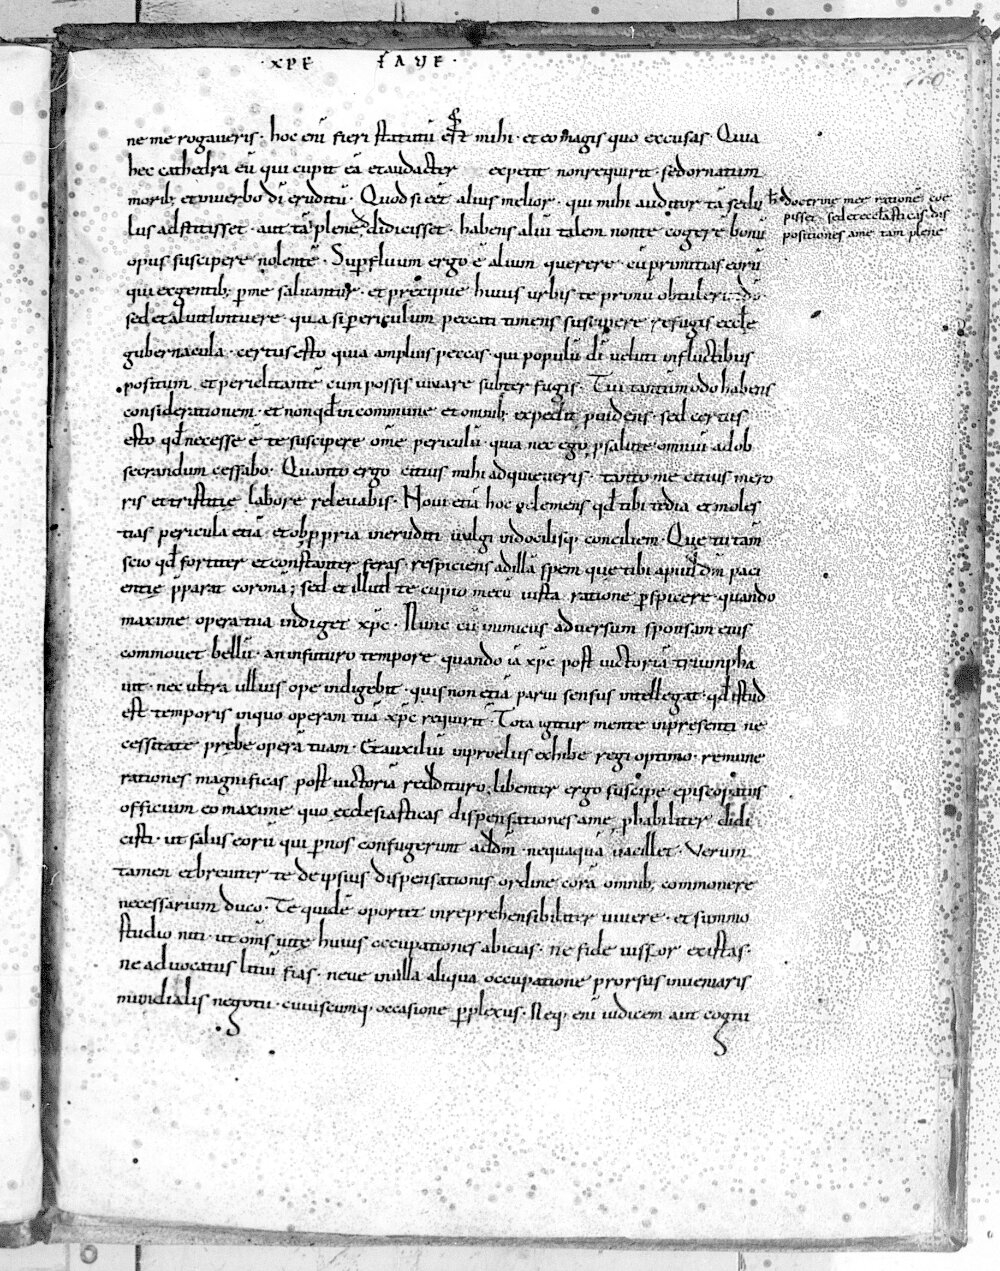 · xpe faue ·
ne me rogaueris · hoc eni̅ fieri statutu̅ est mihi · et eo magis quo excusas · Quia
hec cathedra eu̅ qui cupit ea̅ et audacter expetit non requirit · sed ornatum
morib; et in uerbo di̅ eruditu̅ · Quod si e̅et alius melior · qui mihi auditor ta̅ sedu
lus adstitisset · aut ta̅ plene didicisset · habens aliu̅ talem non te cogere̅ bonu̅
doctrine mee ratione̅ coe
pisset · sed et ecclasticas dis
positiones a me tam plene
opus suscipere nolente̅ · Sup̅fluum ergo e̅ alium querere · cu̅ primitias eoru̅
qui ex gentib; p̲ me saluantur · et precipue huius urbis te primu̅ obtuleri̅ do̅
sed et aliut intuere · quia si periculum peccati timens suscipere refugis eccle
gubernacula · certus esto quia amplius peccas · qui populu̅ di̅ ueluti in fluctibus
positum et periclitante̅ cum possis iuuare subterfugis · Tui tantummodo habens
considerationem · et non qd̅ in commune et omnib; expedit p̲uidens · sed certus
esto qd̅ necesse e̅ te suscipere om̅e periculu̅ · quia nec ego p̲ salute omniu̅ ad ob
secrandum cessabo · Quanto ergo citius mihi adquieueris · tanto me citius mero
ris et tristitie labore releuabis · Noui etia̅ hoc o clemens qd̅ tibi tedia et moles
tias pericula etia̅ et obp̲pria ineruditi uulgi indocilisq; conciliem · Que tu tam
scio qd̅ fortiter et constanter feras · respiciens ad illa̅ spem que tibi apud dm̅ paci
entie p̲parat corona̅; sed et illud te cupio mecu̅ iusta ratione p̲spicere · quando
maxime opera tua indiget xpc̅ · Nunc cu̅ inimicus aduersum sponsam eius
commouet bellu̅ · an in futuro tempore quando ia̅ xpc̅ post uictoria̅ triumpha
uit · nec ultra ullius ope indigebit · quis non etia̅ parui sensus intellegat · qd̅ istud
est temporis in quo operam tua̅ xpc̅ requirit · Tota igitur mente in presenti ne
cessitate prebe opera̅ tuam · Et auxiliu̅ in proelus exhibe regi optimo · remune
rationes magnificas post uictoria̅ reddituro · libenter ergo suscipe episcopatus
officium eo maxime quo ecclesiasticas dispensationes a me p̲babiliter didi
cisti · ut salus eoru̅ qui p̲ nos confugerunt ad dm̅ · nequaqua̅ uacillet · Verum
tamen et breuiter te de ipsius dispensationis ordine cora̅ omnib; commonere
necessarium duco · Te quide̅ oportet inreprehensibiliter uiuere · et summo
studio niti · ut om̅s uite huius occupationes abicias · ne fide iussor existas ·
ne aduocatus litiu̅ fias · neue in ulla aliqua occupatione prorsus inueniaris
mundialis negotii · cuiuscumq; occasione p̲plexus · Neq; eni̅ iudicem aut cogni